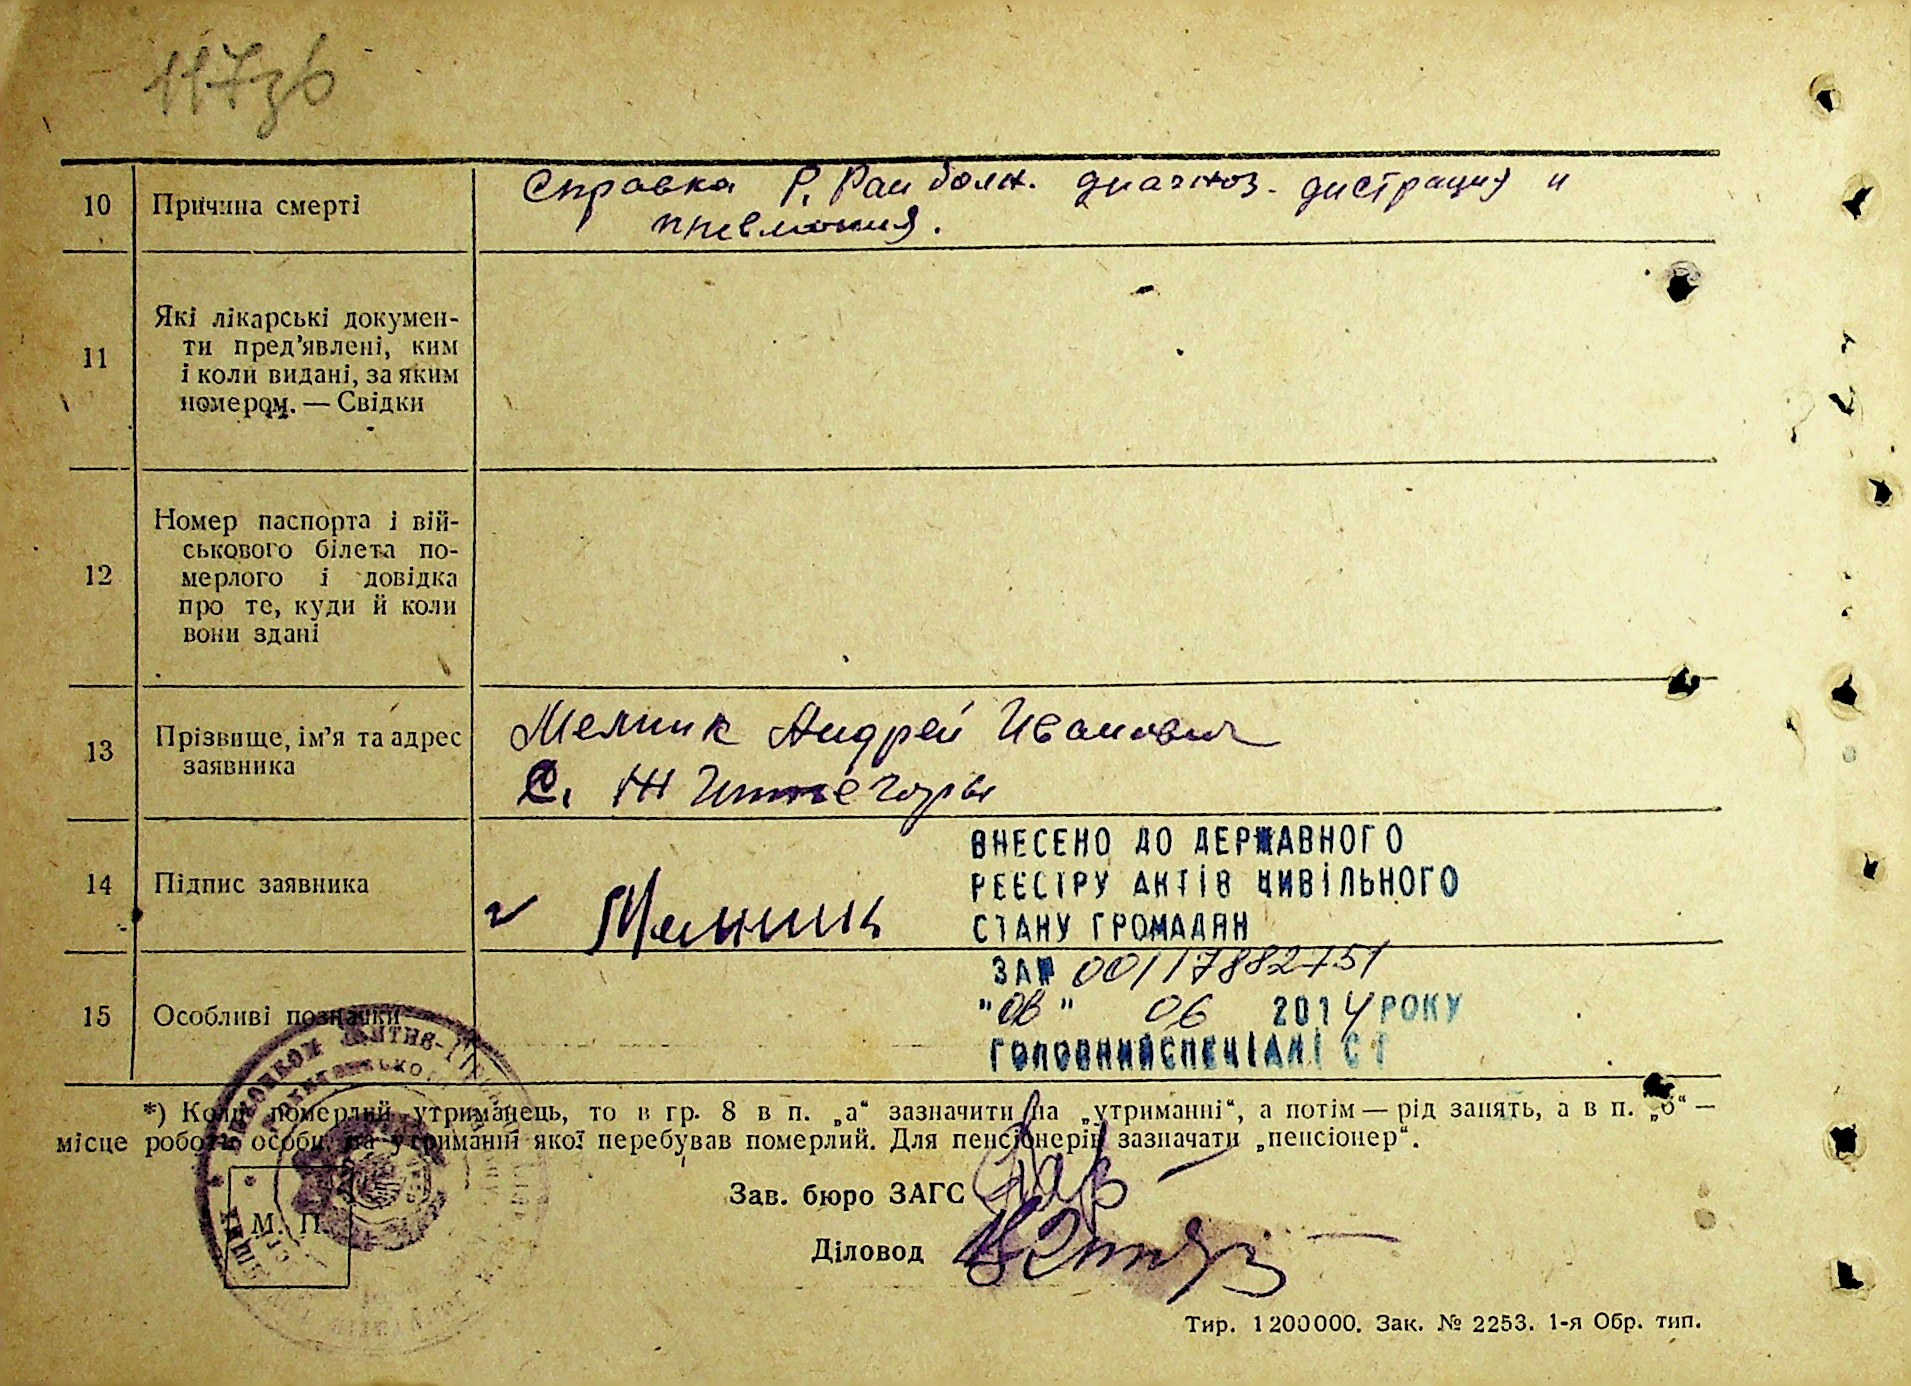 117зв
10 Причина смерті
Справка Р. Рай болн. диагноз. дистрация и
пневмония.
11 Які лікарські докумен-
ти пред'явлені, ким
і коли видані, за яким
номером. — Свідки
12 Номер паспорта і вій-
ськового білета по-
мерлого і довідка
про те, куди й коли
вони здані
13 Прізвище, ім'я та адрес
заявника
Мельник Андрей Иванович
С. Житнегоры
14 Підпис заявника
Мельник
ВНЕСЕНО ДО ДЕРЖАВНОГО
РЕЄСТРУ АКТІВ ЦИВІЛЬНОГО
СТАНУ ГРОМАДЯН
ЗА № 00117882751
"03" 06 2014 РОКУ
ГОЛОВНИЙ СПЕЦІАЛІСТ
15 Особливі позначки
*) Коли померлий утриманець, то в гр. 8 в п. „а“ зазначити на „утриманні“, а потім — рід занять, а в п. „б“ —
місце роботи особи, на утриманні якої перебував померлий. Для пенсіонерів зазначати „пенсіонер“.
Зав. бюро ЗАГС
М. П.
Діловод
Тир. 1200000. Зак. № 2253. 1-я Обр. тип.